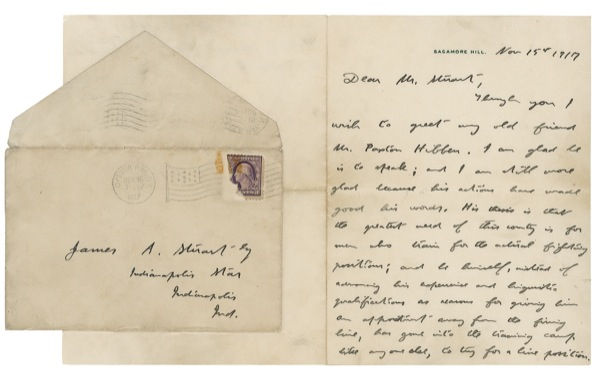 James A. Stuart
Indianapolis Star
Indianapolis
Ind.
SAGAMORE HILL. Nov 15th 1917
Dear Mr. Stuart,
Through you I
wish to greet my old friend
Mr. Paxton Hibben. I am glad he
is to speak; and I am still more
glad because his actions have made
good his words. His thesis is that
the greatest need of this country is for
men who train for the actual fighting
positions; and he himself, instead of
advancing his experience and linguistic
qualifications as reasons for giving him
an appointment away from the firing
line, has gone into the training camp
like anyone else, to try for a line position.